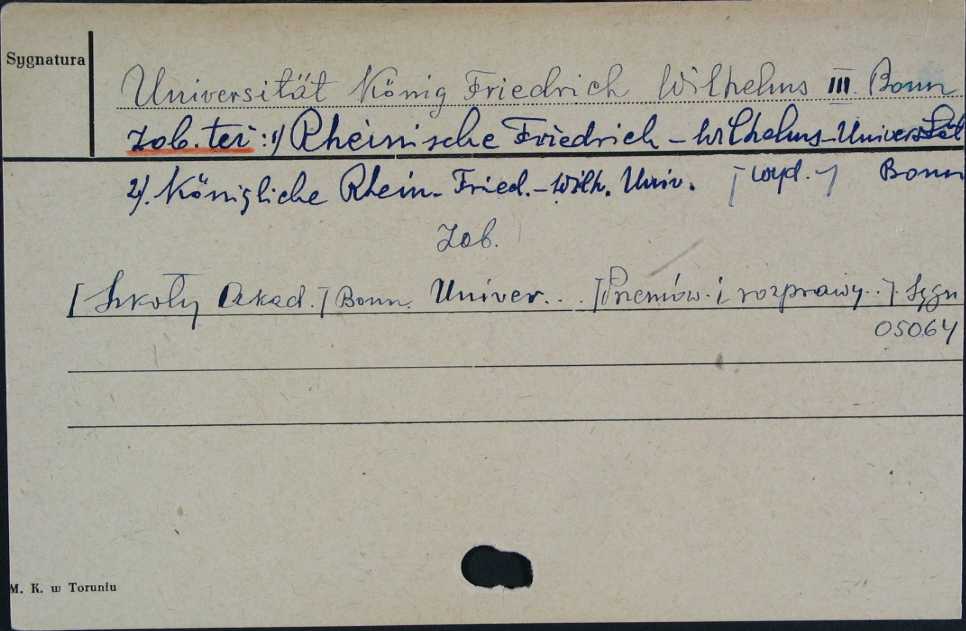 Sygnatura
Universität König Friedrich Wilhelms III. Bonn
Zob. też: 1) Rheinische Friedrich-Wilhelms-Universität
2). Königliche Rhein. Fried.-Wilh. Univ. [wyd.] Bonn
Zob.
[Szkoły Akad.] Bonn. Univer... [Przemów. i rozprawy..] Sygn
05064
M. K. w Toruniu